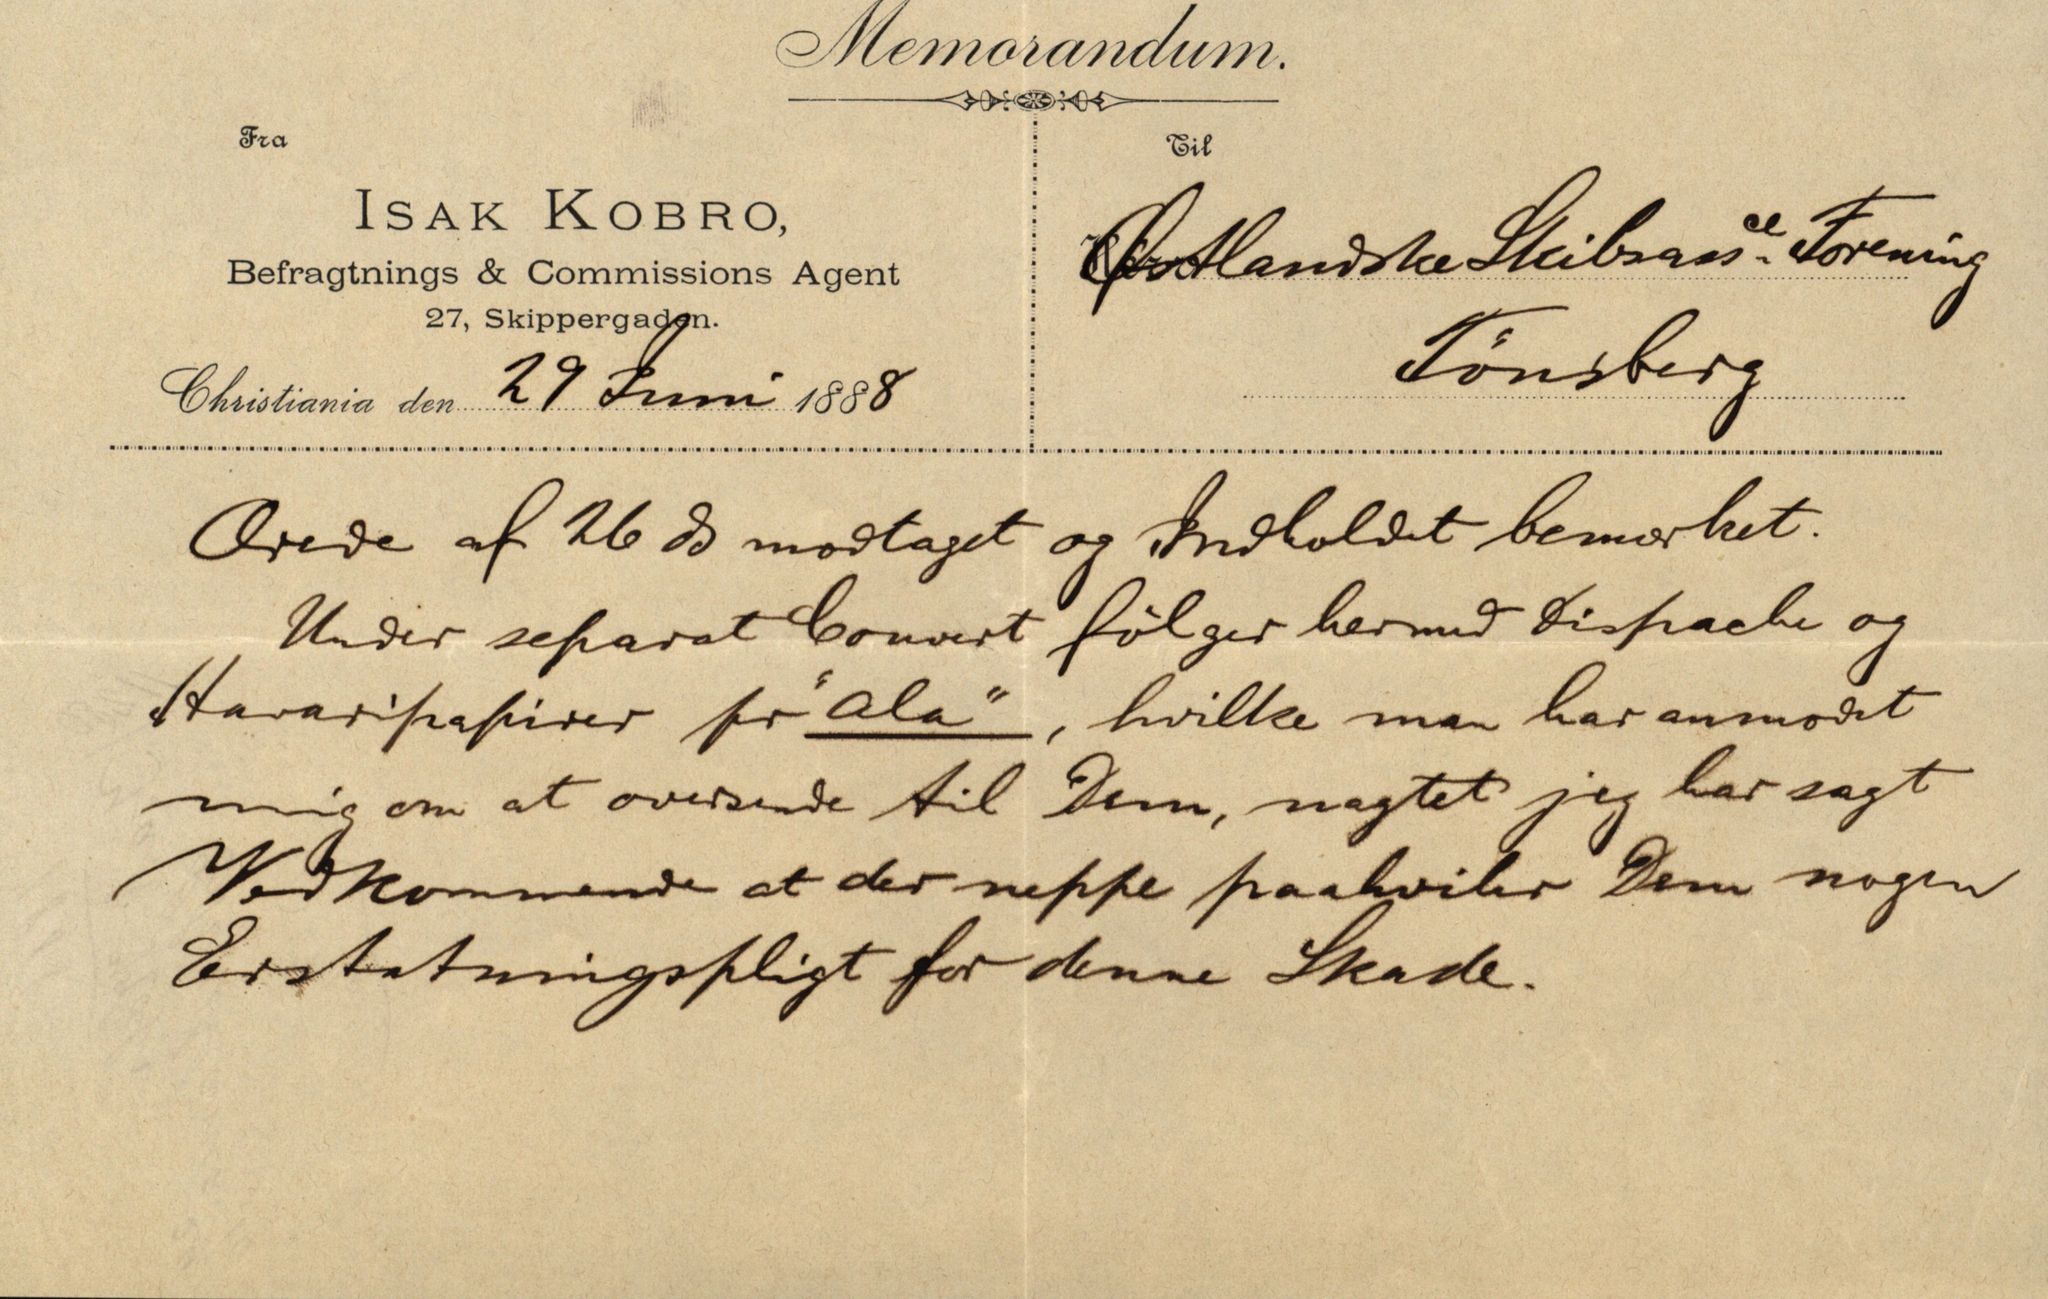 Memorandum.
Fra
Til
ISAK KOBRO,
Befragtnings & Commissions Agent
27, Skippergaden.
Christiania den 29 Juni 1888
Østlandske Skibsass ce Forening
Tönsberg
Ærede af 26 ds modtaget og Indholdet bemærket.
Under separat Convert fölger hermed Dispache og
Havaripapirer pr "Ala", hvilke man har anmodet
mig om at oversende til Dem, uagtet jeg har sagt
Vedkommende at der neppe paahviler Dem nogen
Erstatningspligt for denne Skade.